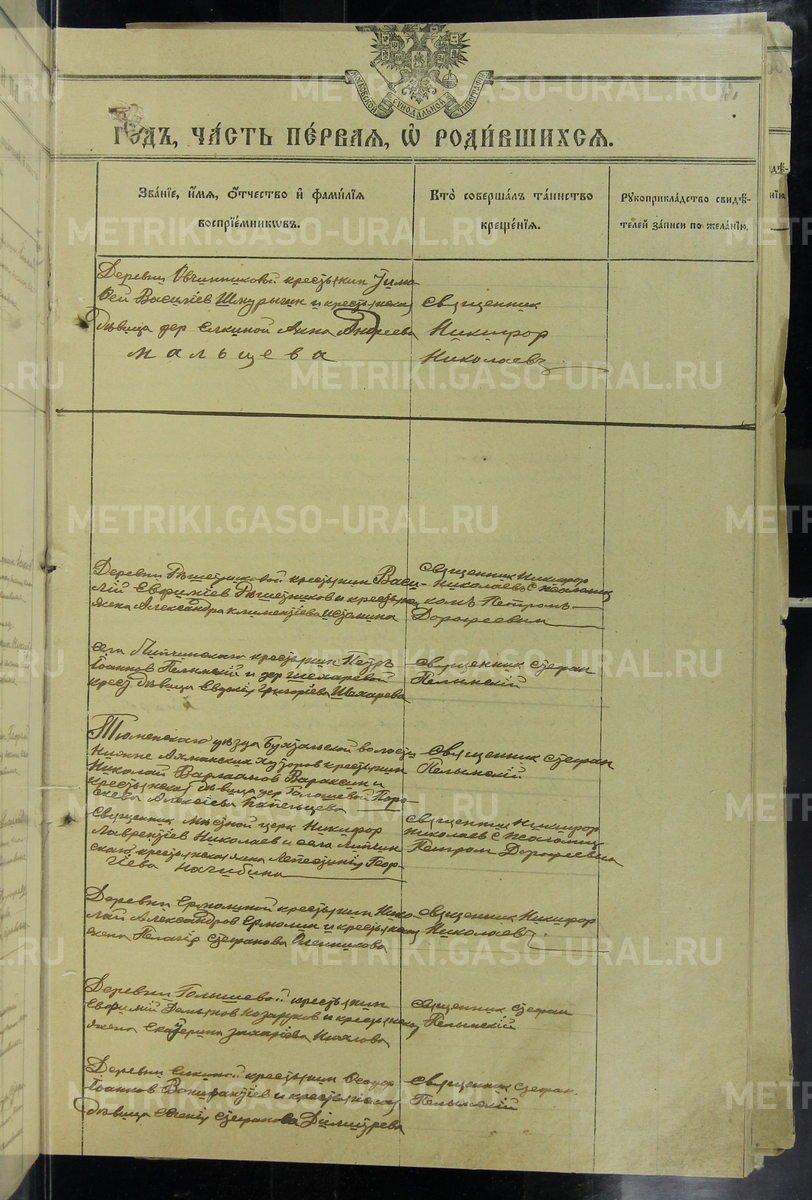 МОСКОВСКОЙ СУНОДАЛЬНОЙ ТУПОГРАФІИ
ГОДЪ, ЧАСТЬ ПЕРВАЯ, Ѡ РОДИВШИХСЯ.
Званіе, имя, отчество и фамилія
воспріемниковъ.
Кто совершалъ таинство
крещенія.
Рукоприкладство свидѣ-
телей записи по желанію.
Деревни Овчинниковой крестьянин Тимо-
фей Василіев Шнурычин и крестьянская
дѣвица дер Елкиной Анна Андреева
Мальцева
Священник
Никифор
Николаевъ
Деревни Рѣшетниковой крестьянин Васи-
лій Евфиміев Рѣшетников и крестьян
жена Александра Климентіева Истомина
Священник Никифор
Николаевъ с псаломщи
комъ Петромъ
Дорофеевим
села Липчинскаго крестьянин Петръ
Іоаннов Пелымскій и дер Шехаревой
крест дѣвица Евдокія Григоріева Шахарева
Священник Стефан
Пелымскій
Тюменскаго уѣзда Бухтальской волости
Нижне Ахманских хуторов крестьянин
Николай Варлаамов Вараксин и
крестьянская дѣвица дер Голышевой Пара-
скева Алексіева Капельцева
Священник Стефан
Пелымскій
Священник мѣстной церк Никифор
Лаврентіев Николаев и села Липчин
скаго крестьянская жена Геор-
гіева Начибина
Священник Никифор
Николаев с Псаломщ
Петром Дорофеевим
Деревни Ермолиной крестьянин Нико-
лай Александров Ермолин и крестьянск
жена Пелагія Стефанова
Священник Никифор
Николаевъ
Деревни Голышевой крестьянин
Евфимій Демьянов Козарков и крестьянск
жена Екатерина Захаріева
Священник Стефан
Пелымскій
Деревни Елкиной крестьянин Феодор
Іоаннов Вонифантіев и крестьянская
дѣвица Евгенія Стефанова Димитрева
Священник Стефан
Пелымскій
METRIKI.GASO-URAL.RU